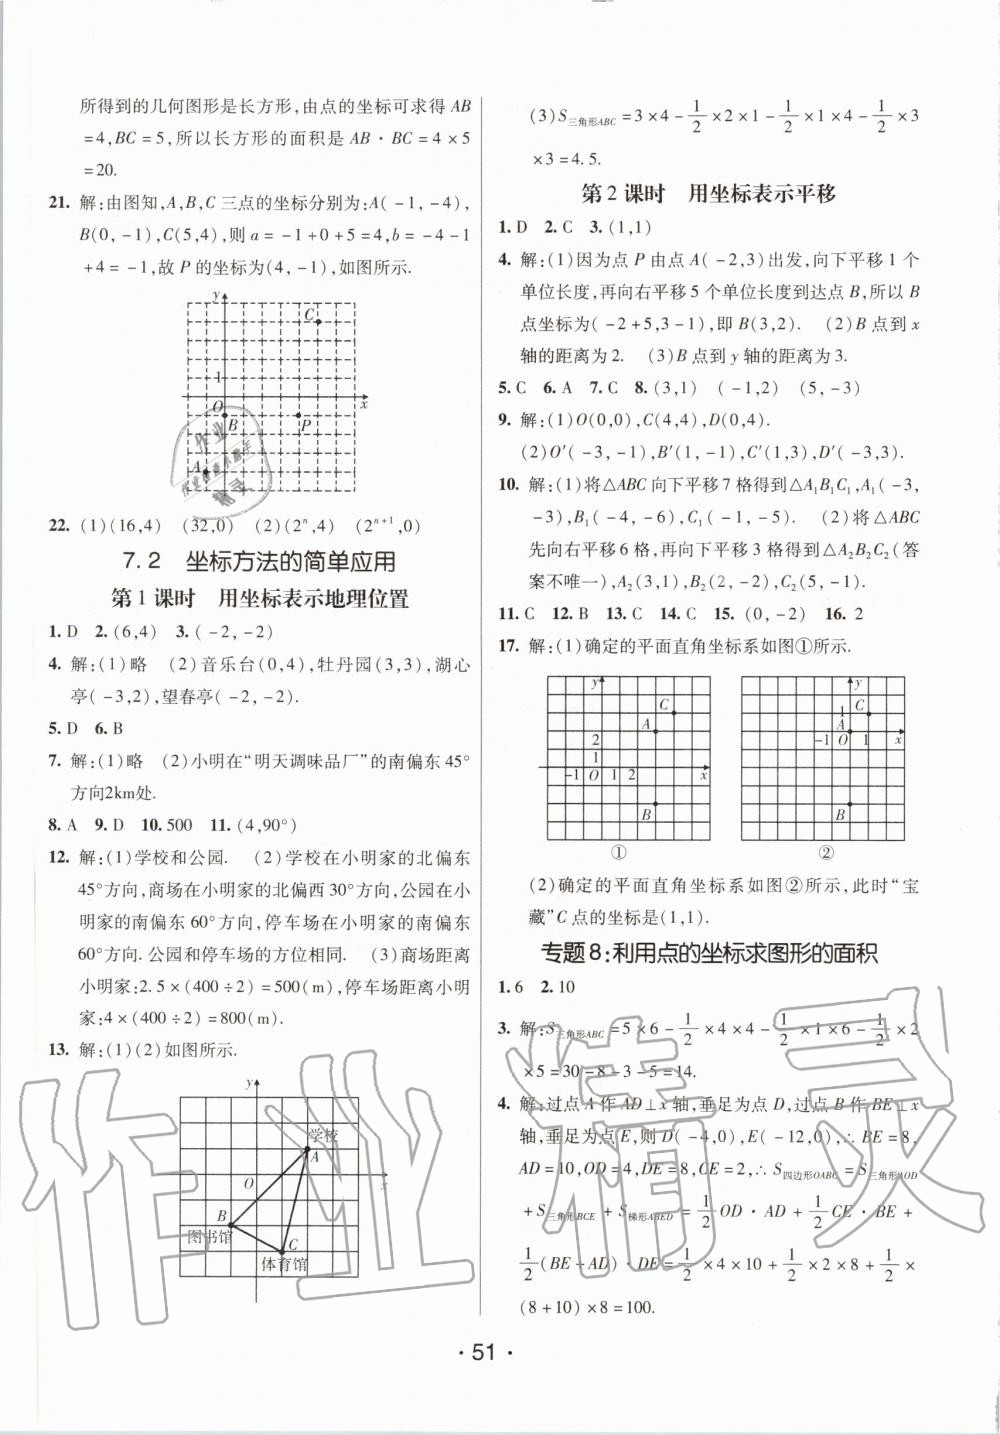 所得到的几何图形是长方形,由点的坐标可求得 AB
=4,BC=5,所以长方形的面积是 AB·BC=4×5
=20.
21. 解:由图知,A,B,C 三点的坐标分别为:A(-1,-4),
B(0,-1),C(5,4),则 a=-1+0+5=4,b=-4-1
+4=-1,故 P 的坐标为(4,-1),如图所示.
y
C
1
O
x
B
P
A
22. (1)(16,4) (32,0) (2)(2ⁿ,4) (2ⁿ⁺¹,0)
7.2 坐标方法的简单应用
第1课时 用坐标表示地理位置
1. D 2. (6,4) 3. (-2,-2)
4. 解:(1)略 (2)音乐台(0,4),牡丹园(3,3),湖心
亭(-3,2),望春亭(-2,-2).
5. D 6. B
7. 解:(1)略 (2)小明在“明天调味品厂”的南偏东45°
方向2km处.
8. A 9. D 10. 500 11. (4,90°)
12. 解:(1)学校和公园. (2)学校在小明家的北偏东
45°方向,商场在小明家的北偏西30°方向,公园在小
明家的南偏东60°方向,停车场在小明家的南偏东
60°方向.公园和停车场的方位相同. (3)商场距离
小明家:2.5×(400÷2)=500(m),停车场距离小明
家:4×(400÷2)=800(m).
13. 解:(1)(2)如图所示.
y
学校
A
O
x
B
图书馆
C
体育馆
(3)S三角形ABC=3×4-1/2×2×1-1/2×1×4-1/2×3
×3=4.5.
第2课时 用坐标表示平移
1. D 2. C 3. (1,1)
4. 解:(1)因为点 P 由点 A(-2,3)出发,向下平移1个
单位长度,再向右平移5个单位长度到达点 B,所以 B
点坐标为(-2+5,3-1),即 B(3,2). (2)B 点到 x
轴的距离为2. (3)B 点到 y 轴的距离为3.
5. C 6. A 7. C 8. (3,1) (-1,2) (5,-3)
9. 解:(1)O(0,0),C(4,4),D(0,4).
(2)O′(-3,-1),B′(1,-1),C′(1,3),D′(-3,3).
10. 解:(1)将△ABC 向下平移7格得到△A₁B₁C₁,A₁(-3,
-3),B₁(-4,-6),C₁(-1,-5). (2)将△ABC
先向右平移6格,再向下平移2格得到△A₂B₂C₂(答
案不唯一),A₂(3,1),B₂(2,-2),C₂(5,-1).
11. C 12. B 13. C 14. C 15. (0,-2) 16. 2
17. 解:(1)确定的平面直角坐标系如图①所示.
y
C
A
2
1
-1 O 1 2 x
B
①
y
1 C
A
-1 O 1 x
B
②
(2)确定的平面直角坐标系如图②所示,此时“宝
藏”C 点的坐标是(1,1).
专题8:利用点的坐标求图形的面积
1. 6 2. 10
3. 解:S三角形ABC=5×6-1/2×4×4-1/2×1×6-1/2×2
×5=30-8-3-5=14.
4. 解:过点 A 作 AD⊥x 轴,垂足为点 D,过点 B 作 BE⊥x
轴,垂足为点 E,则 D(-4,0),E(-12,0),∴BE=8,
AD=10,OD=4,DE=8,CE=2,∴S四边形OABC=S三角形AOD
+S三角形BCE+S梯形ABED=1/2OD·AD+1/2CE·BE+
1/2(BE+AD)·DE=1/2×4×10+1/2×2×8+1/2×
(8+10)×8=100.
·51·
作业精灵